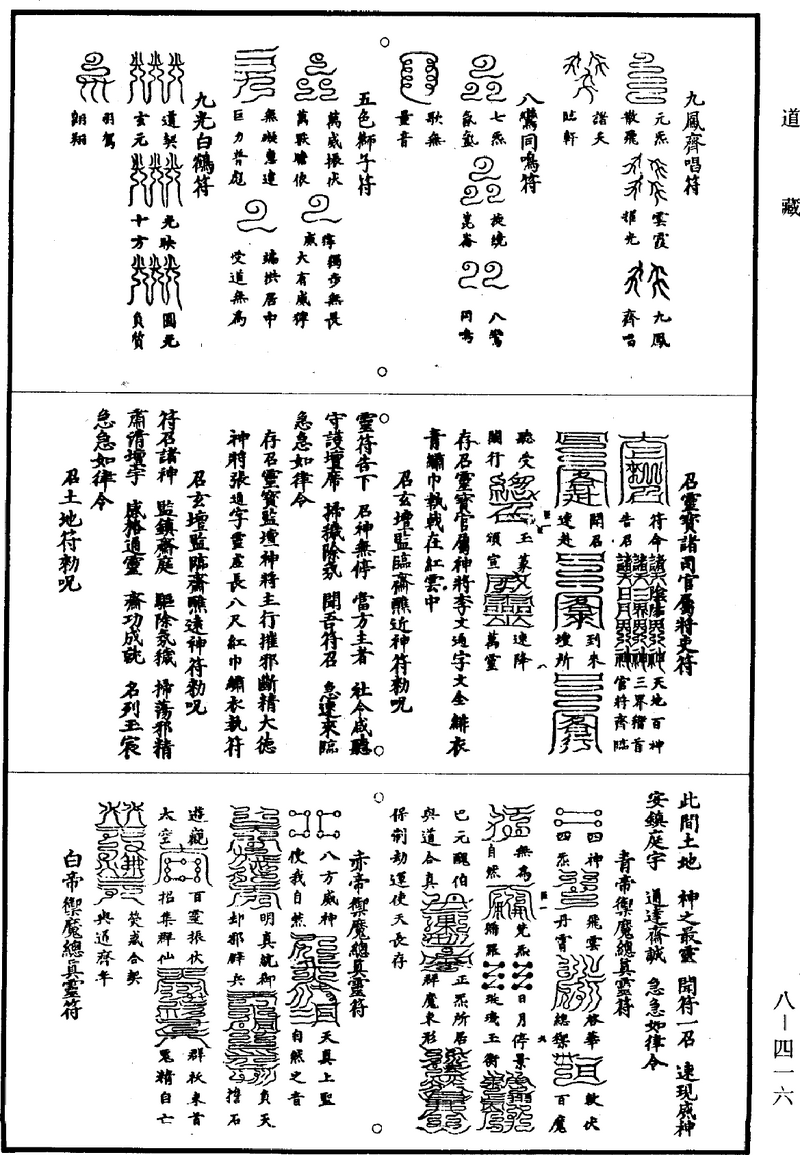 道藏
九鳳齊唱符
元炁 雲霞 九鳳
散飛 耀光 齊唱
諸天
臨軒
八鸞同鳴符
七炁 旋繞 八鸞
氤氳 崑崙 同鳴
歌無
量音
五色獅子符
萬威振伏 獰獨步無畏
萬獸瞻依 威大有威獰
無礙 端拱居中
巨力普 受道無為
九光白鶴符
道契 光映 圓光
玄元 十方 負質
羽駕
翱翔
召靈寶諸司官屬將吏符
符命 天地百神
告召 三界稽首
官將齊臨
開召 到來
速赴 壇所
聽受 玉篆 速降
關行 頒宣 萬靈
存召靈寶官屬神將李文通字文全緋衣
青繡巾執戟在紅雲中
召玄壇監臨齋醮近神符勑呪
靈符告下 召神無停 當方主者 社令咸聽
守護壇席 掃穢除氛 聞吾符召 急速來臨
急急如律令
存召靈寶監壇神將主行摧邪斷精大德
神將張通字靈虛長八尺紅巾繡衣執符
召玄壇監臨齋醮遠神符勑呪
符召諸神 監鎮齋庭 驅除氛穢 掃蕩邪精
肅清壇宇 感格通靈 齋功成就 名列玉宸
急急如律令
召土地符勑呪
此間土地 神之最靈 聞符一召 速現威神
安鎮庭宇 通達齋誠 急急如律令
青帝禦魔總真靈符
四神 飛雲 啓華 敢伏
四炁 丹霄 總禦 百魔
無為 梵炁 日月停景
自然 彌羅 璇璣玉衡
已元醜伯 正炁所居
與道合真 群魔束形
保制劫運使天長存
赤帝禦魔總真靈符
八方威神 天真上聖
使我自然 自然之音
明真統御 負天
却邪辟兵 擔石
遊觀 百靈振伏 群妖束首
太空 招集群仙 鬼精自亡
熒惑合契
與道齊年
白帝禦魔總真靈符
八－四一六